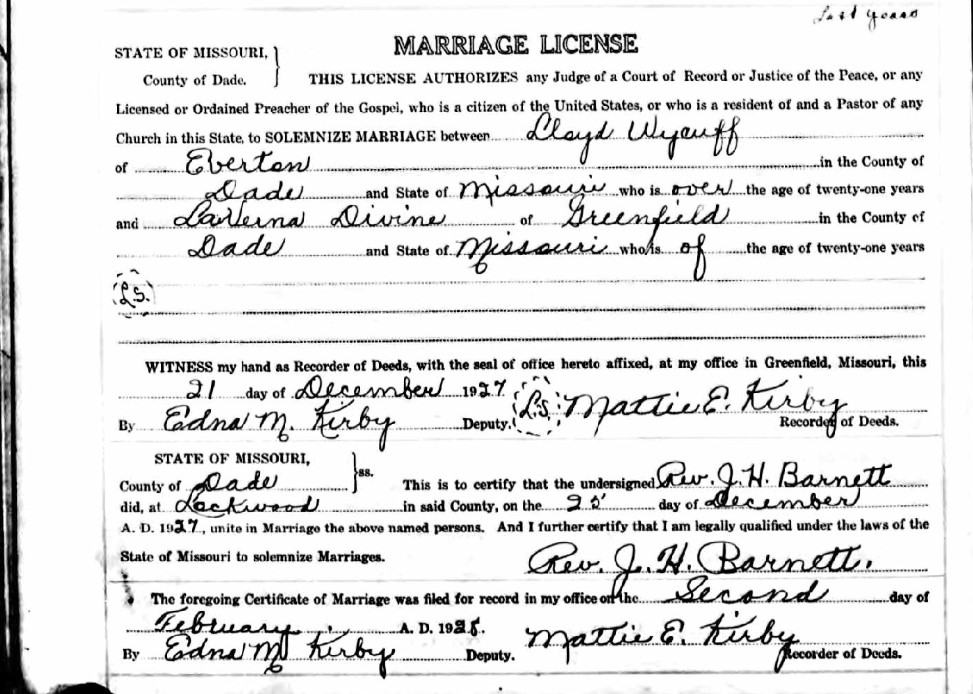 Last years
MARRIAGE LICENSE
STATE OF MISSOURI,
County of Dade.
THIS LICENSE AUTHORIZES any Judge of a Court of Record or Justice of the Peace, or any
Licensed or Ordained Preacher of the Gospel, who is a citizen of the United States, or who is a resident of and a Pastor of any
Church in this State, to SOLEMNIZE MARRIAGE between Lloyd Wycuff
of Everton in the County of
Dade and State of Missouri who is over the age of twenty-one years
and LaVerna Divine of Greenfield in the County of
Dade and State of Missouri who is of the age of twenty-one years
L.S.
WITNESS my hand as Recorder of Deeds, with the seal of office hereto affixed, at my office in Greenfield, Missouri, this
21 day of December 1927 L.S. Mattie E. Kirby
By Edna M. Kirby Deputy. Recorder of Deeds.
STATE OF MISSOURI,
County of Dade ss. This is to certify that the undersigned Rev. J. H. Barnett
did, at Lockwood in said County, on the 25 day of December
A. D. 1927, unite in Marriage the above named persons. And I further certify that I am legally qualified under the laws of the
State of Missouri to solemnize Marriages.
Rev. J. H. Barnett.
The foregoing Certificate of Marriage was filed for record in my office on the Second day of
February A. D. 1928. Mattie E. Kirby
By Edna M Kirby Deputy. Recorder of Deeds.